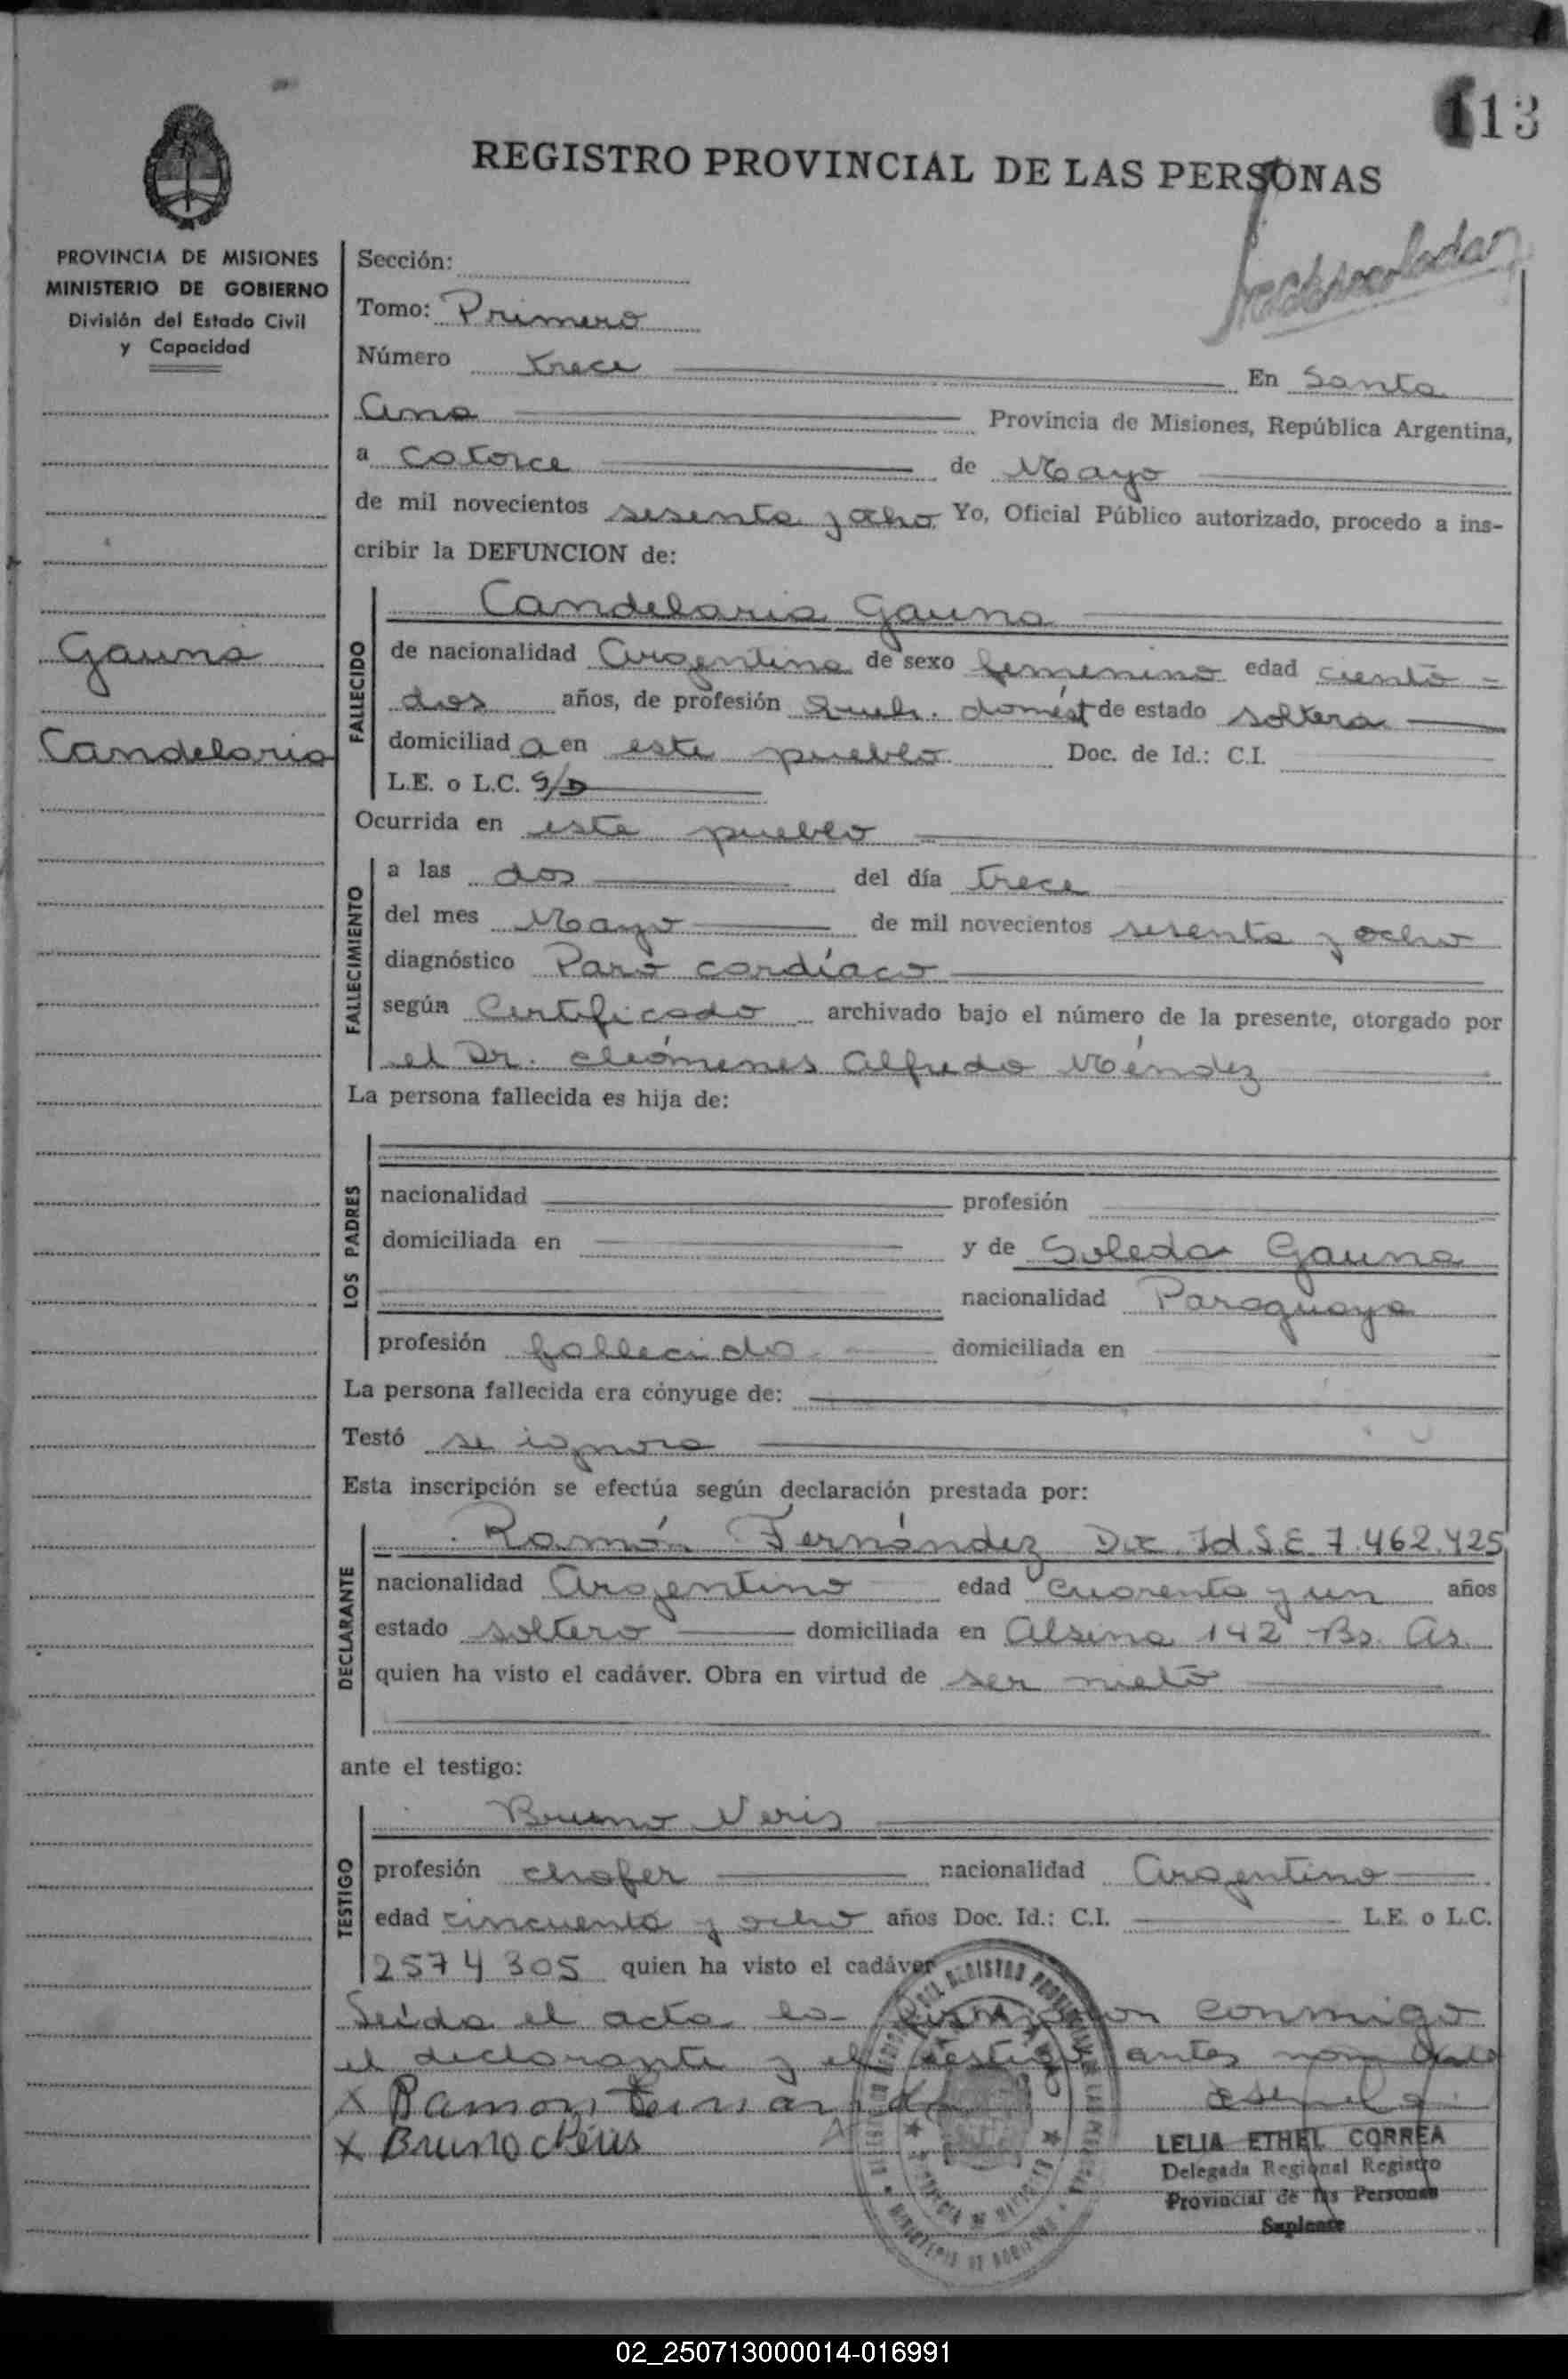 113
REGISTRO PROVINCIAL DE LAS PERSONAS
PROVINCIA DE MISIONES
MINISTERIO DE GOBIERNO
División del Estado Civil
y Capacidad
Sección:
Tomo: Primero
Número trece En Santa
Ana Provincia de Misiones, República Argentina,
a catorce de Mayo
de mil novecientos sesenta y ocho Yo, Oficial Público autorizado, procedo a ins-
cribir la DEFUNCION de:
Gauna
Candelaria
FALLECIDO
Candelaria Gauna
de nacionalidad Argentina de sexo femenino edad ciento
dos años, de profesión Queh. domést de estado soltera
domiciliad a en este pueblo Doc. de Id.: C.I.
L.E. o L.C. S/D
Ocurrida en este pueblo
FALLECIMIENTO
a las dos del día trece
del mes Mayo de mil novecientos sesenta y ocho
diagnóstico Paro cardíaco
según Certificado archivado bajo el número de la presente, otorgado por
el Dr. Cleómenes Alfredo Méndez
La persona fallecida es hija de:
LOS PADRES
nacionalidad profesión
domiciliada en y de Soledad Gauna
nacionalidad Paraguaya
profesión fallecida domiciliada en
La persona fallecida era cónyuge de:
Testó se ignora
Esta inscripción se efectúa según declaración prestada por:
DECLARANTE
Ramón Fernández Doc. Id. L.E. 7.462.425
nacionalidad Argentino edad cuarenta y un años
estado soltero domiciliada en Alsina 142 Bs. As.
quien ha visto el cadáver. Obra en virtud de ser nieto
ante el testigo:
TESTIGO
Bruno Neris
profesión chofer nacionalidad Argentino
edad cincuenta y ocho años Doc. Id.: C.I. L.E. o L.C.
2574305 quien ha visto el cadáver
Leída el acta la firmaron conmigo
el declarante y el testigo antes nombrado
x Ramon Fernández
x Bruno Neris
LELIA ETHEL CORREA
Delegada Regional Registro
Provincial de las Personas
Suplente
02_250713000014-016991